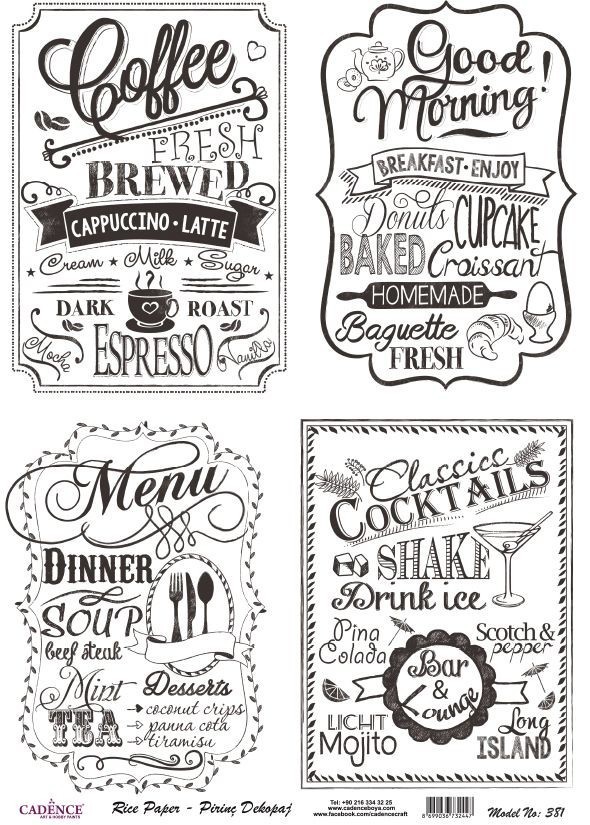 Coffee
FRESH
BREWED
CAPPUCCINO • LATTE
Cream ★ Milk ★ Sugar
DARK ROAST
Mocha ESPRESSO Vanilla
Good
Morning!
BREAKFAST • ENJOY
Donuts CUPCAKE
BAKED Croissant
HOMEMADE
Baguette
FRESH
Menu
DINNER
SOUP
beef steak
Mint
TEA
Desserts
→ coconut crips
→ panna cota
→ tiramisu
Classics
COCKTAILS
SHAKE
Drink ice
Pina
Colada
Scotch &
pepper
Bar
&
Lounge
LICHT
Mojito
Long
ISLAND
CADENCE
ART & HOBBY PAINTS
Rice Paper - Pirinç Dekopaj
Tel: +90 216 334 32 25
www.cadenceboya.com
www.facebook.com/cadencecraft
8 699036 732447
Model No: 381